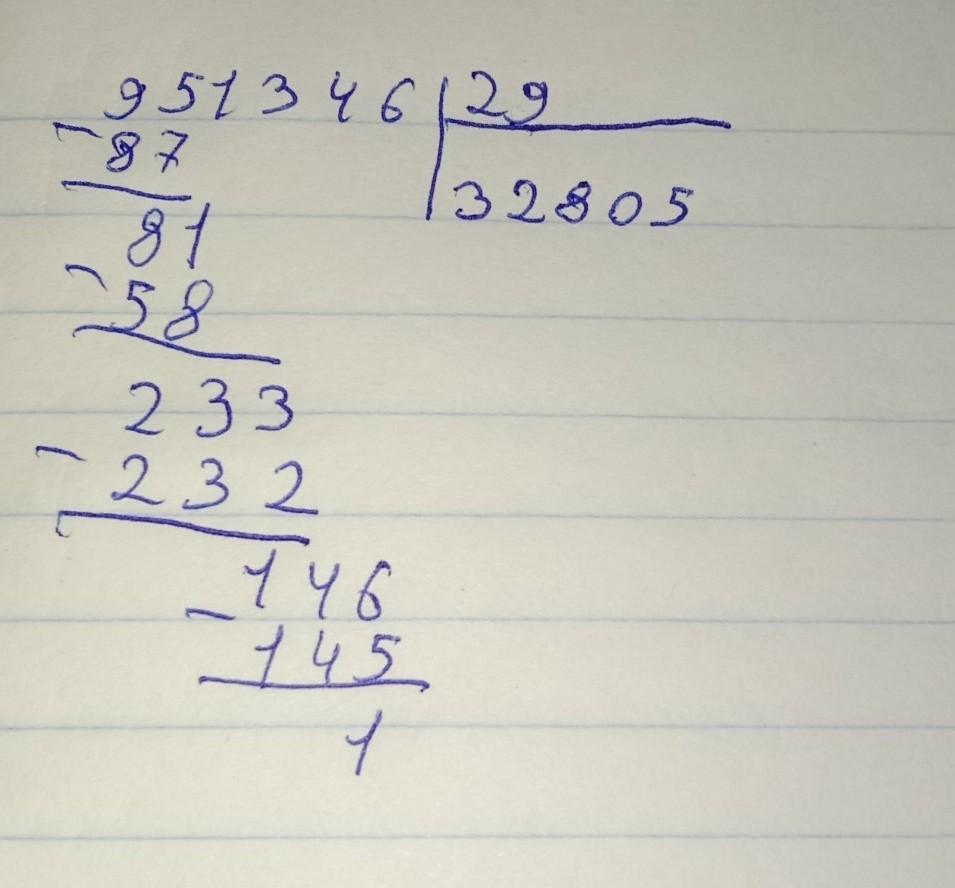 951346 29
- 87 32805
81
- 58
233
- 232
146
- 145
1